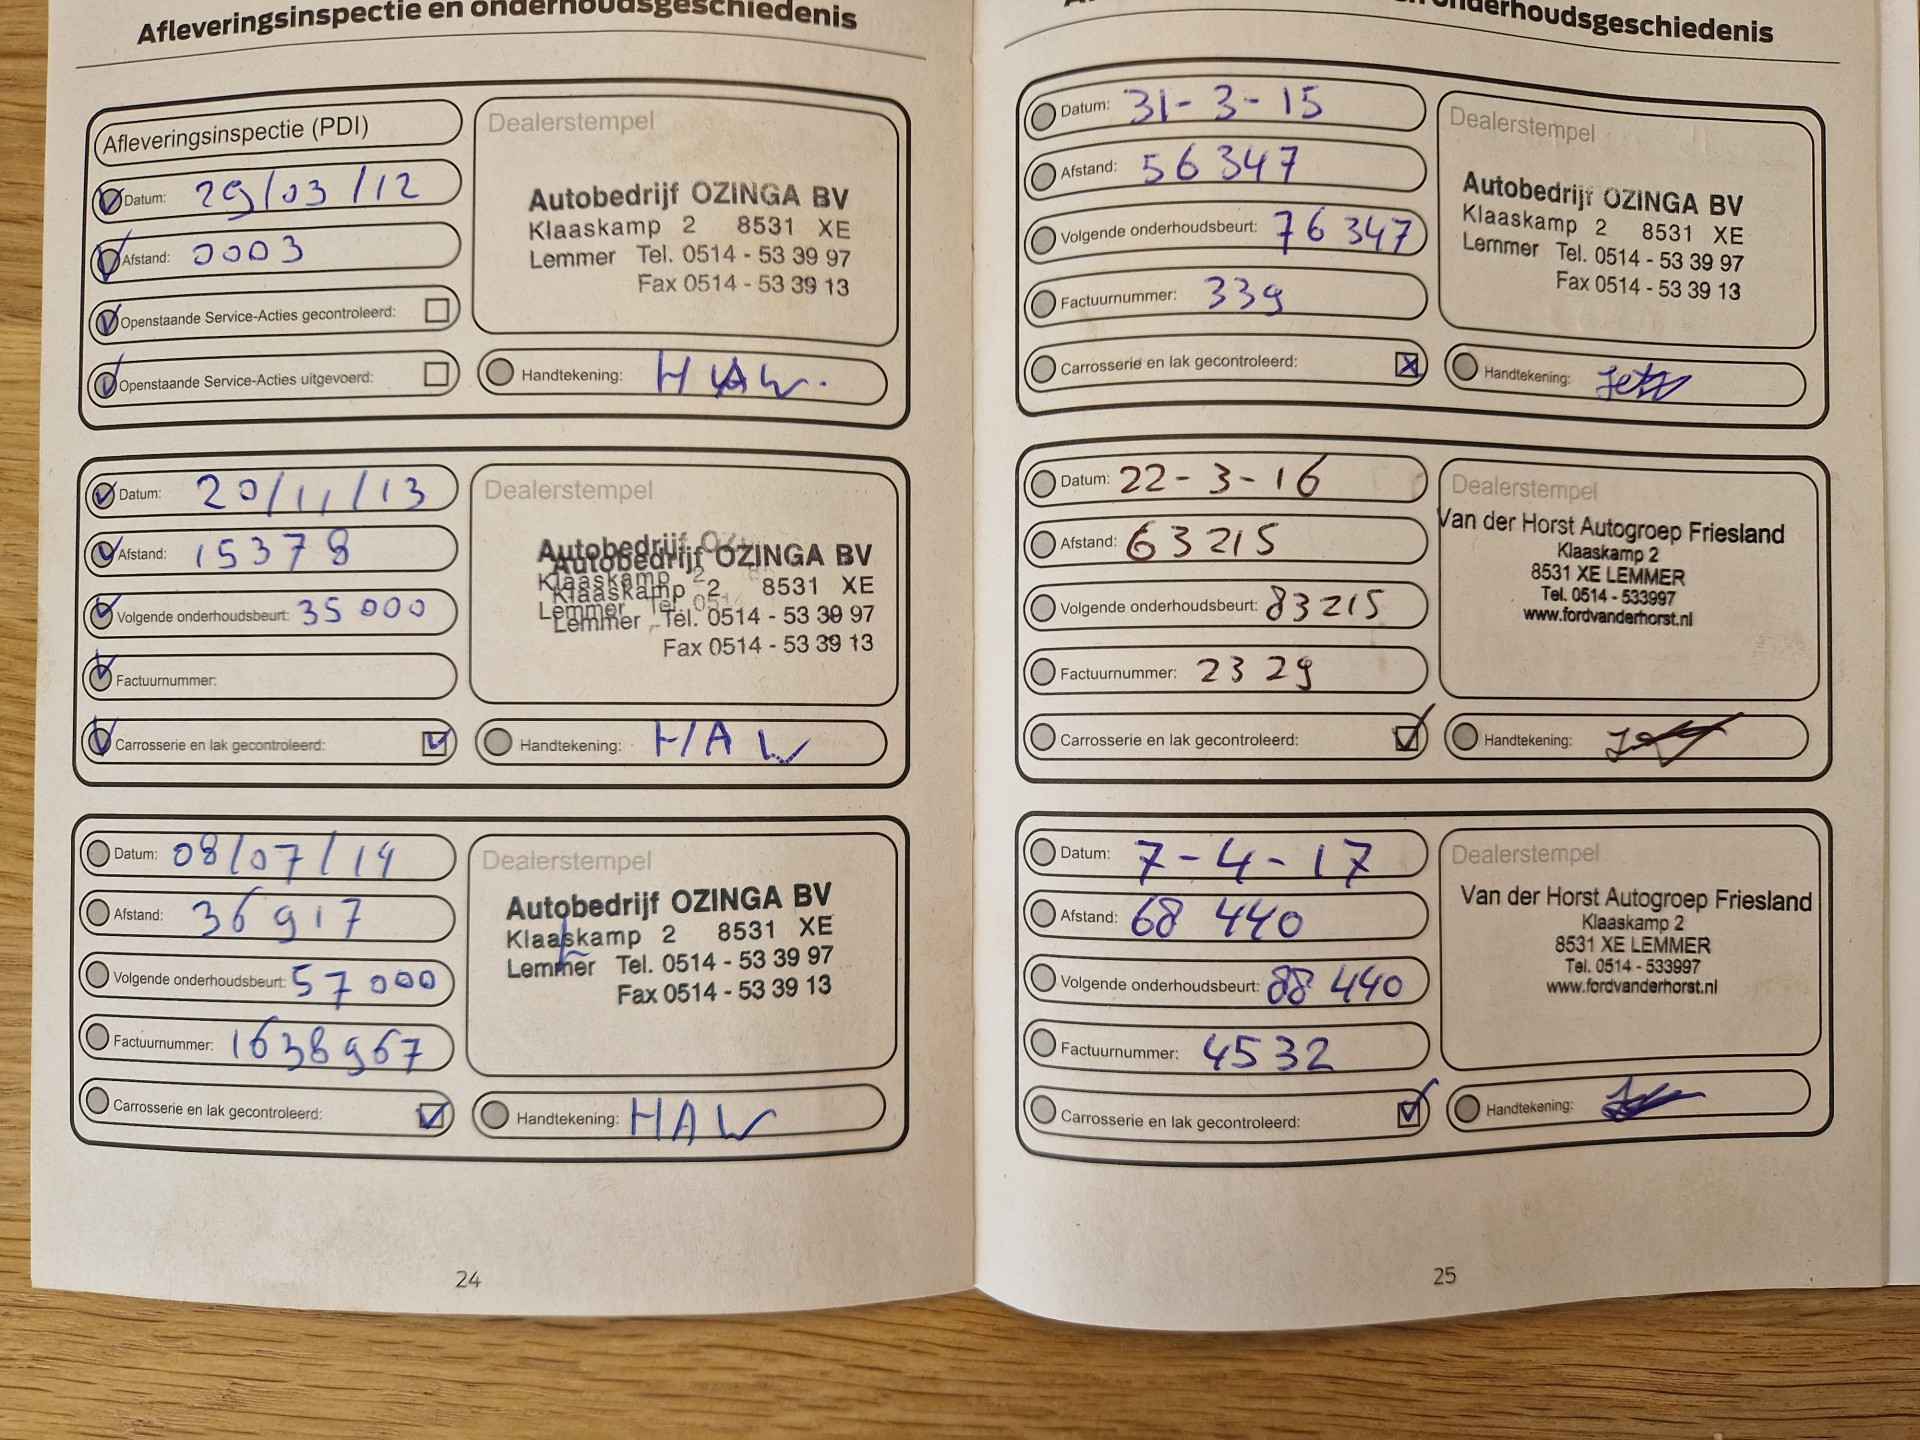 Afleveringsinspectie en onderhoudsgeschiedenis
Afleveringsinspectie (PDI)
Datum: 29/03/12
Afstand: 0003
Openstaande Service-Acties gecontroleerd:
Openstaande Service-Acties uitgevoerd:
Dealerstempel
Autobedrijf OZINGA BV
Klaaskamp 2 8531 XE
Lemmer Tel. 0514 - 53 39 97
Fax 0514 - 53 39 13
Handtekening: HAW.
Datum: 20/11/13
Afstand: 15378
Volgende onderhoudsbeurt: 35000
Factuurnummer:
Carrosserie en lak gecontroleerd:
Dealerstempel
Autobedrijf OZINGA BV
Klaaskamp 2 8531 XE
Lemmer Tel. 0514 - 53 39 97
Fax 0514 - 53 39 13
Handtekening: HAW
Datum: 08/07/14
Afstand: 36917
Volgende onderhoudsbeurt: 57000
Factuurnummer: 1638967
Carrosserie en lak gecontroleerd:
Dealerstempel
Autobedrijf OZINGA BV
Klaaskamp 2 8531 XE
Lemmer Tel. 0514 - 53 39 97
Fax 0514 - 53 39 13
Handtekening: HAW
24
onderhoudsgeschiedenis
Datum: 31-3-15
Afstand: 56347
Volgende onderhoudsbeurt: 76347
Factuurnummer: 339
Carrosserie en lak gecontroleerd:
Dealerstempel
Autobedrijf OZINGA BV
Klaaskamp 2 8531 XE
Lemmer Tel. 0514 - 53 39 97
Fax 0514 - 53 39 13
Handtekening:
Datum: 22-3-16
Afstand: 63215
Volgende onderhoudsbeurt: 83215
Factuurnummer: 2329
Carrosserie en lak gecontroleerd:
Dealerstempel
Van der Horst Autogroep Friesland
Klaaskamp 2
8531 XE LEMMER
Tel. 0514 - 533997
www.fordvanderhorst.nl
Handtekening:
Datum: 7-4-17
Afstand: 68 440
Volgende onderhoudsbeurt: 88 440
Factuurnummer: 4532
Carrosserie en lak gecontroleerd:
Dealerstempel
Van der Horst Autogroep Friesland
Klaaskamp 2
8531 XE LEMMER
Tel. 0514 - 533997
www.fordvanderhorst.nl
Handtekening:
25